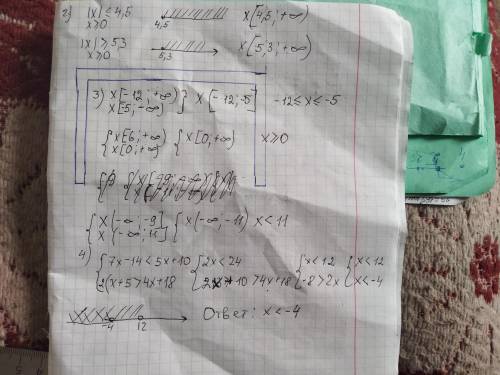 2) |x| ≤ 4,5
x ≥ 0
4,5
x[4,5; +∞)
|x| ≥ 5,3
x ≥ 0
5,3
x[5,3; +∞)
3) x[-12; +∞)
x[5; -∞)
} x[-12; -5] -12 ≤ x ≤ -5
{ x[6; +∞)
x[0; +∞)
{ x[0; +∞) x ≥ 0
{ x(-∞; -9]
x(-∞; 11]
{ x(-∞; -11) x < 11
4) { 7x-14 < 5x+10 { 2x < 24 { x < 12 { x < 12
2(x+5 > 4x+18 10 > 4x+18 -8 > 2x x < -4
-4 12 Ответ: x < -4